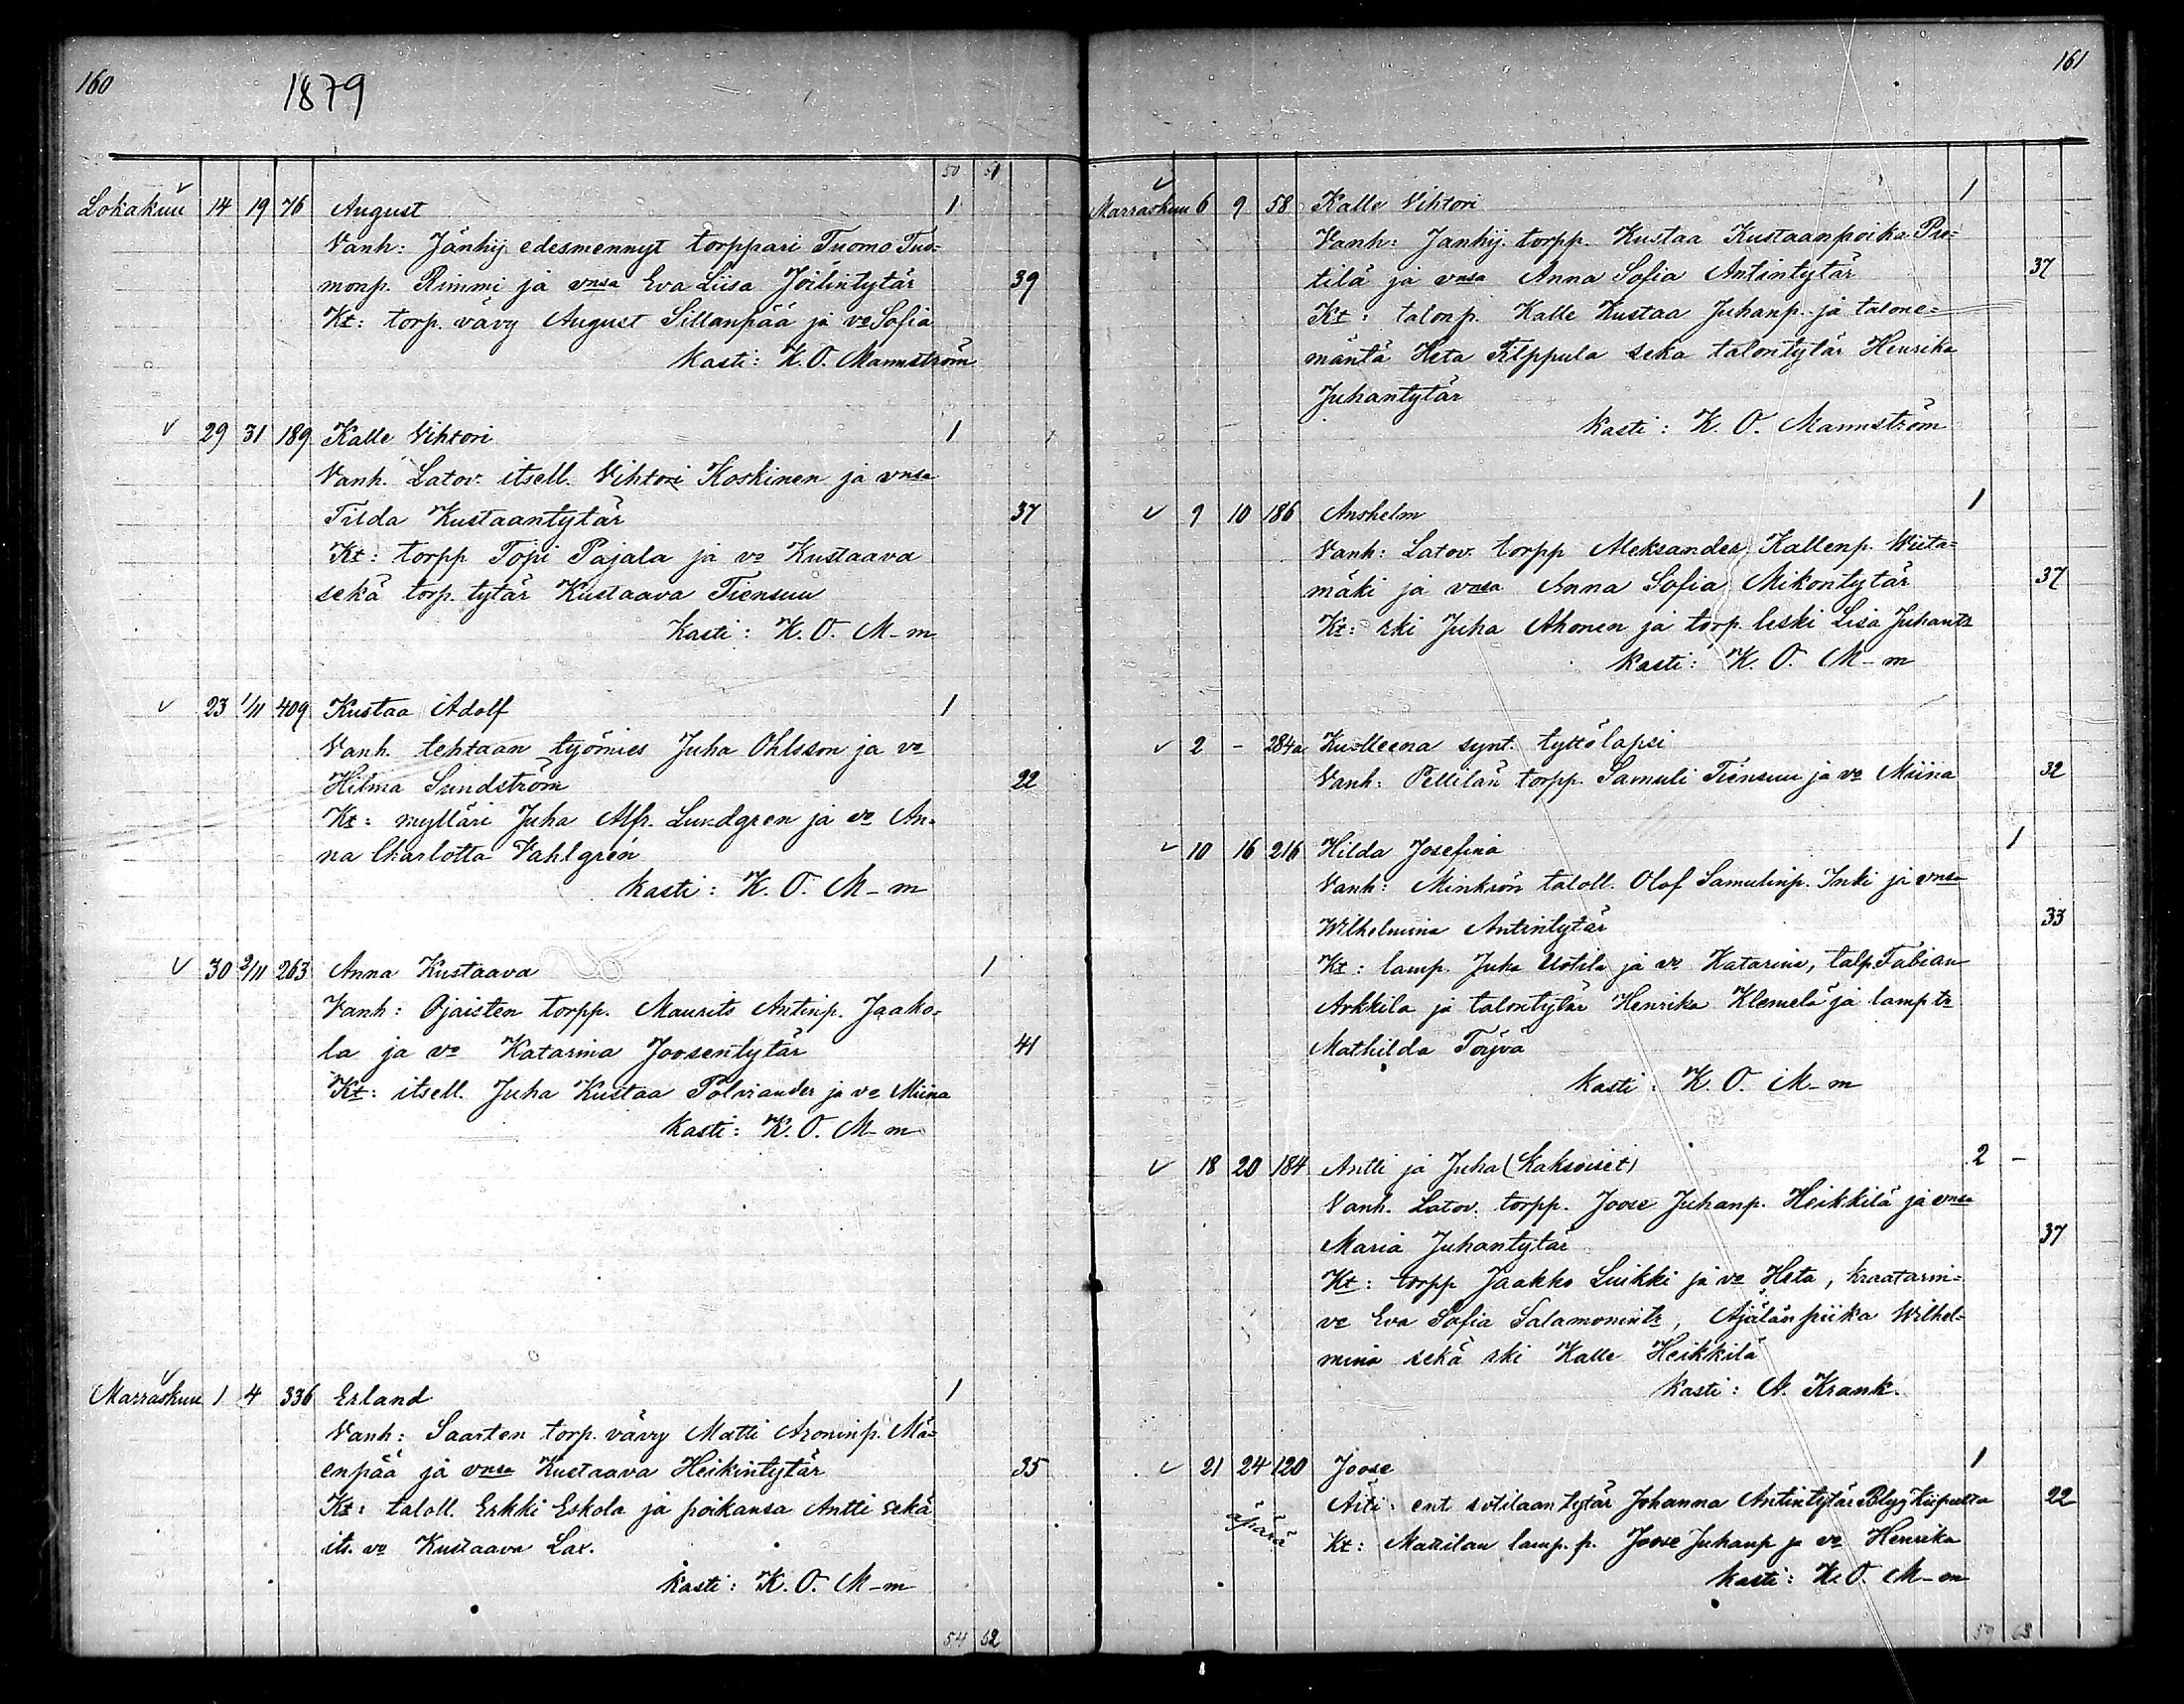 160
1879
50 51
Lokakuu 14 19 76 August 1
Vanh: Jänhij. edesmennyt torppari Tuomo Tuo-
monp. Rimmi ja vnsa Eva Liisa Joilintytär 39
Kt: torp. vävy August Sillanpää ja vo Sofia
Kasti: K. O. Mannström
29 31 189 Kalle Vihtori 1
Vanh. Latov. itsell. Vihtori Koskinen ja vnsa
Tilda Kustaantytär 37
Kt: torpp Topi Pajala ja vo Kustaava
sekä torp. tytär Kustaava Tiensuu
Kasti: K. O. M-m
23 1/11 409 Kustaa Adolf 1
Vanh. tehtaan työmies Juha Ohlsson ja vo
Hilma Sundström 22
Kt: mylläri Juha Alfr. Lundgren ja vo An-
na Charlotta Vahlgrén
Kasti: K. O. M-m
30 2/11 263 Anna Kustaava 1
Vanh: Ojaisten torpp. Maurits Antinp. Jaako-
la ja vo Katarina Joosentytär 41
Kt: itsell. Juha Kustaa Polviander ja vo Miina
Kasti: K. O. M-m
Marraskuu 1 4 336 Erland 1
Vanh: Saarten torp. vävy Matti Aroninp. Mä-
enpää ja vnsa Kustaava Heikintytär 35
Kt: taloll. Erkki Eskola ja poikansa Antti sekä
its. vo Kustaava Lax.
Kasti: K. O. M-m
54 52
161
Marraskuu 6 9 58 Kalle Vihtori 1
Vanh: Janhij. torpp. Kustaa Kustaanpoika Pre-
tilä ja vnsa Anna Sofia Antintytär 37
Kt: talonp. Kalle Kustaa Juhanp. ja talone-
mäntä Heta Filppula sekä talontytär Henrika
Juhantytär
Kasti: K. O. Mannström
9 10 186 Anshelm 1
Vanh: Latov. torpp Aleksander Kallenp. Wiita-
mäki ja vnsa Anna Sofia Mikontytär 37
Kt: rki Juha Ahonen ja torp. leski Lisa Juhantr
Kasti: K. O. M-m
2 - 284a Kuolleena synt. tyttölapsi
Vanh: Pellilän torpp. Samuli Tiensuu ja vo Miina 32
10 16 216 Hilda Josefina 1
Vanh: Minkiön taloll. Olof Samulinp. Inki ja vnsa
Wilhelmina Antintytär 33
Kt: lamp. Juha Uotila ja vo Katarina, talp. Fabian
Arkkila ja talontytär Henrika Klemelä ja lamp tr
Mathilda Töyvä
Kasti: K. O. M-m
18 20 184 Antti ja Juha (Kaksoiset) 2 -
Vanh. Latov. torpp. Joose Juhanp. Heikkilä ja vnsa
Maria Juhantytär 37
Kt: torpp Jaakko Luikki ja vo Heta, kraatarin-
vo Eva Sofia Salamonintr, Ajälän piika Wilhel-
mina sekä rki Kalle Heikkilä
Kasti: A. Krank.
21 24 120 Joose 1
äpärä
Äiti: ent sotilaan tytär Johanna Antintytär Blyg Kiipulta 22
Kt: Mattilan lamp. p. Joose Juhanp ja vo Henrika
Kasti: K. O. M-m
59 53